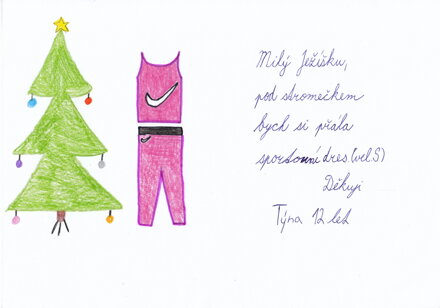 Milý Ježíšku,
pod stromečkem
bych si přála
sportovní dres (vel S)
Děkuji
Týna 12 let